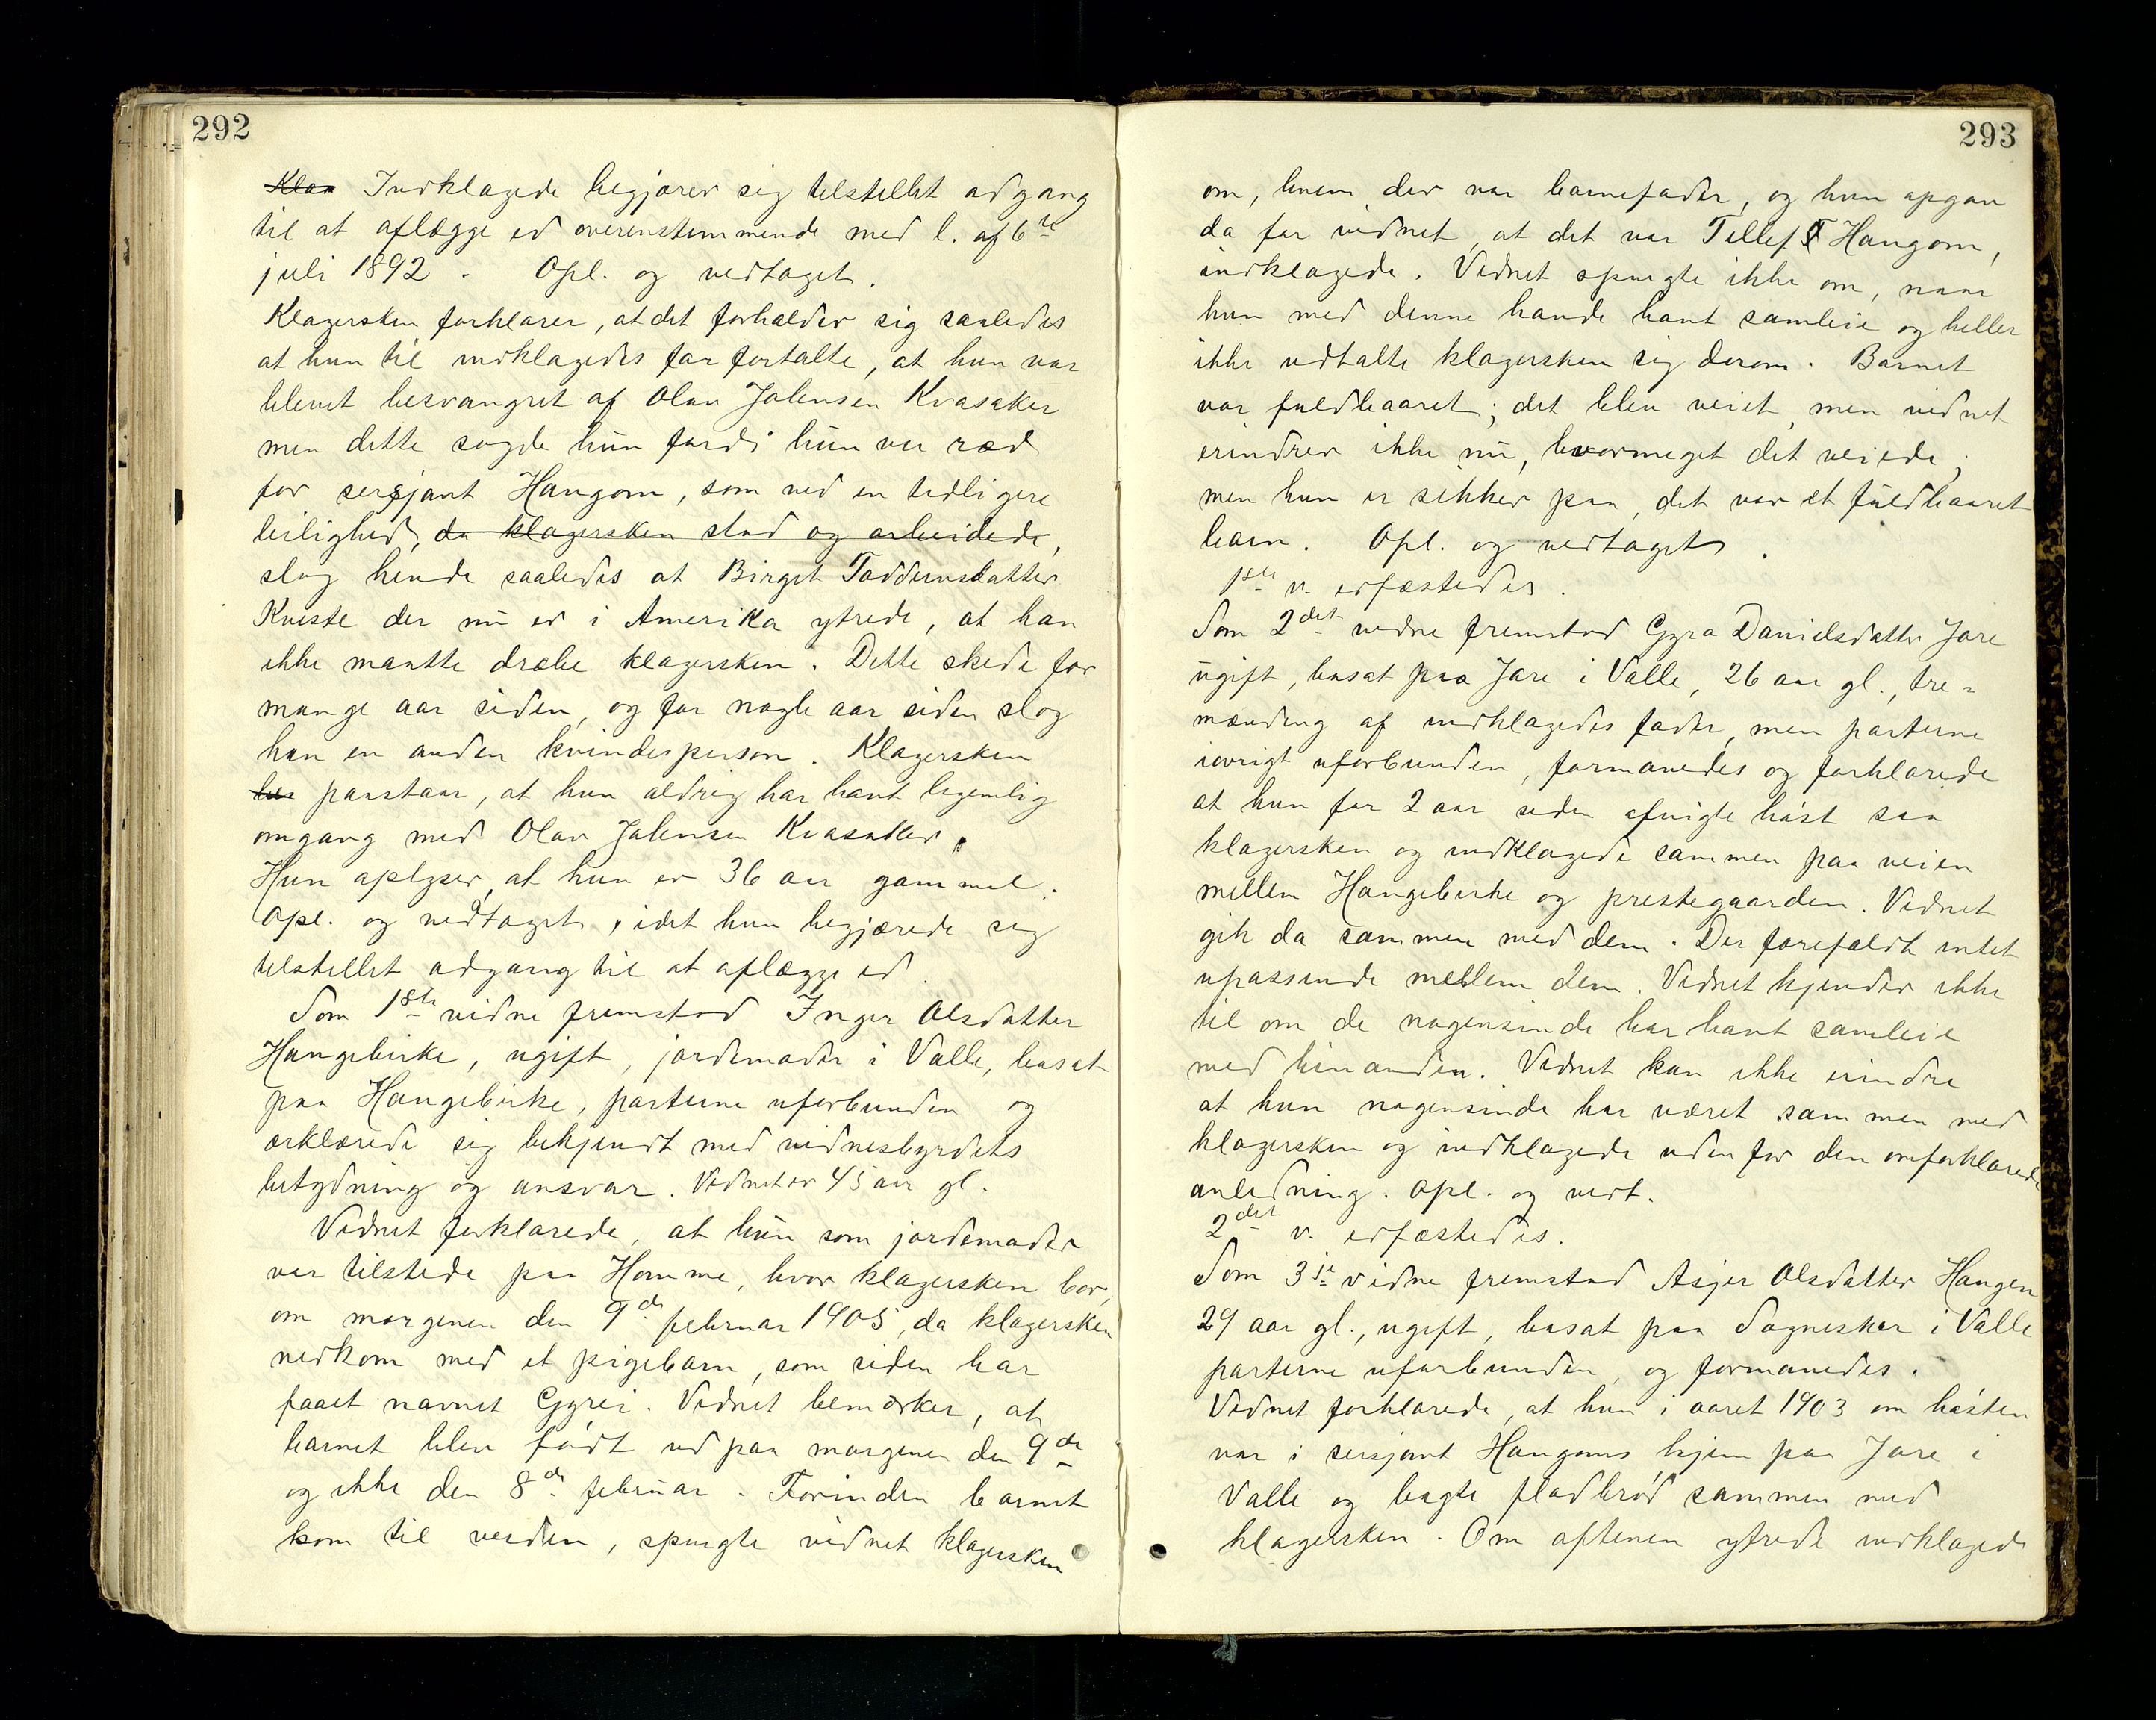 292
Klan Indklagede begjærer sig telstellet adgang
til at aflægge ed overensstemmende med l. af 6te
juli 1892. Opl. og vedtaget.
Klagersken forklarer, at det forholder sig saaledes
at hun til indklagedes far fortalte, at hun var
blevet besvangret af Olav Jolensen Kvasaker
men dette sagde hun fordi hun var ræd
for sersjant Haugom, som ved en tidligere
leilighed, da klagersken stod og arbeidede,
slog hende saaledes at Birget Taddeusdatter
Kveste der nu er i Amerika ytrede, at han
ikke maatte dræbe klagersken. Dette skede for
mange aar siden, og for nogle aar siden slog
han en anden kvindesperson. Klagersken
hus paastaar, at hun aldrig har havt legemlig
omgang med Olav Jolensen Kvasaker.
Hun oplyser, at hun er 36 aar gammel.
Opl. og vedtaget, idet hun begjærede sig
telstellet adgang til at aflægge ed.
Som 1ste vidne fremstod Inger Olsdatter
Haugebirke, ugift, jordemoder i Valle, bosat
paa Haugebirke, parterne uforbunden og
erklærede sig bekjendt med vidnesbyrdets
betydning og ansvar. Vidnet er 45 aar gl.
Vidnet forklarede, at hun som jordemoder
var tilstede paa Homme, hvor klagersken bor,
om morgenen den 9de februar 1905, da klagersken
nedkom med et pigebarn, som siden har
faaet navnet Gyrei. Vidnet bemærker, at
barnet blev født ud paa morgenen den 9de
og ikke den 8de februar. Forinden barnet
kom til verden, spurgte vidnet klagersken
293
om, hvem der var barnefader, og hun opgav
da for vidnet, at det var Tellef T Haugom,
indklagede. Vidnet spurgte ikke om, naar
hun med denne havde havt samleie og heller
ikke udtalte klagersken sig derom. Barnet
var fuldbaaret; det blev veiet, men vidnet
erindrer ikke nu, hvormeget det veiede;
men hun er sikker paa, det var et fuldbaaret
barn. Opl. og vedtaget.
1ste v. edfæstedes.
Som 2det vidne fremstod Gyro Danielsdatter Jore
ugift, bosat paa Jore i Valle, 26 aar gl., tre-
mænding af indklagedes fader, men parterne
iøvrigt uforbunden, formanedes og forklarede
at hun for 2 aar siden afvigte høst saa
klagersken og indklagede sammen paa veien
mellem Haugebirke og prestegaarden. Vidnet
gik da sammen med dem. Der forefaldt intet
upassende mellem dem. Vidnet kjender ikke
til om de nogensinde har havt samleie
med hinanden. Vidnet kan ikke erindre
at hun nogensinde har været sammen med
klagersken og indklagede uden for den omforklarede
anledning. Opl. og vedt.
2det v. edfæstedes.
Som 3die vidne fremstod Asjer Olsdatter Haugen
29 aar gl., ugift, bosat paa Sagneskar i Valle
parterne uforbunden, og formanedes.
Vidnet forklarede, at hun i aaret 1903 om høsten
var i sersjant Haugoms hjem paa Jore i
Valle og bagte fladbrød sammen med
klagersken. Om aftenen ytrede indklagede